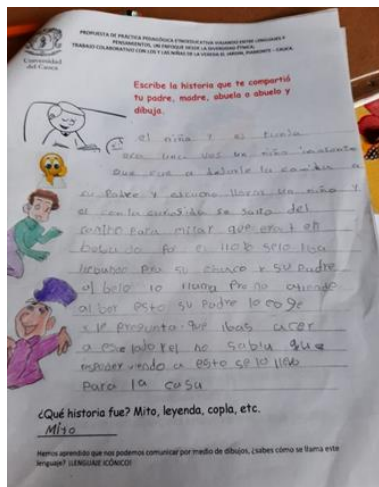 PROPUESTA DE PRÁCTICA PEDAGÓGICA ETNOEDUCATIVA TEJIENDO ENTRE LENGUAJES Y
PENSAMIENTOS, UN ENFOQUE DESDE LA DIVERSIDAD ÉTNICA.
TRABAJO COLABORATIVO CON LOS Y LAS NIÑAS DE LA VEREDA EL JARDÍN, CAUCA.
Universidad
del Cauca
Escribe la historia que te compartió
tu padre, madre, abuela o abuelo y
dibuja.
el niño y el
era una vez un niño
que fue a la comida a
su Padre y escucho llorar un niño y
el con la del
camino para mirar que era i en
por el lloro se lo iba
su chuco y su Padre
al belo lo llama Pero no
al ber esto su Padre lo coge
y le Pregunta que ibas acer
a ese lado y el no sabia que
a esto se lo llebo
Para la casa
¿Qué historia fue? Mito, leyenda, copla, etc.
Mito
Hemos aprendido que nos podemos comunicar por medio de dibujos, ¿sabes cómo se llama este
lenguaje? ¡LENGUAJE ICÓNICO!